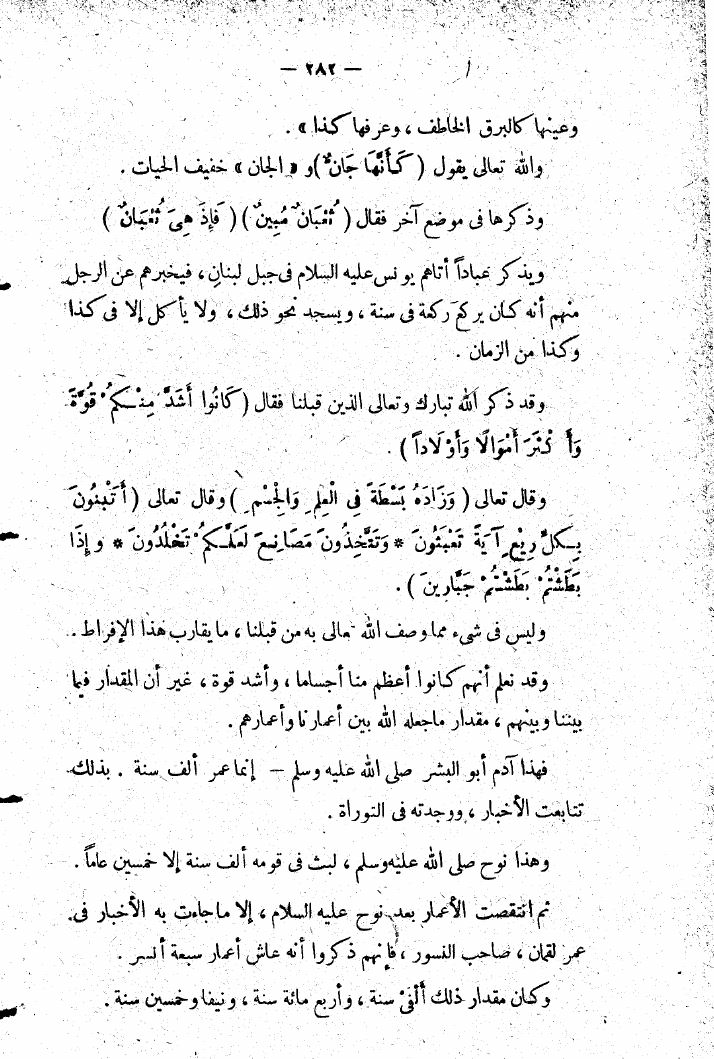 — ٢٨٢ —
وعينها كالبرق الخاطف ، وعرفها كذا » .
والله تعالى يقول ( كَأَنَّهَا جَانٌّ ) و « الجان » خفيف الحيات .
وذكرها فى موضع آخر فقال ( ثُعْبَانٌ مُبِينٌ ) ( فَإِذَ هِىَ ثُعْبَانٌ )
ويذكر عباداً أتاهم يونس عليه السلام فى جبل لبنان ، فيخبرهم عن الرجل
منهم أنه كان يركع ركعة فى سنة ، ويسجد نحو ذلك ، ولا يأكل إلا فى كذا
وكذا من الزمان .
وقد ذكر الله تبارك وتعالى الذين قبلنا فقال ( كَانُوا أَشَدَّ مِنْكُمْ قُوَّةً
وَأَكْثَرَ أَمْوَالًا وَأَوْلَاداً ) .
وقال تعالى ( وَزَادَهُ بَسْطَةً فِى الْعِلْمِ وَالْجِسْمِ ) وقال تعالى ( أَتَبْنُونَ
بِكُلِّ رِيْعٍ آيَةً تَعْبَثُونَ * وَتَتَّخِذُونَ مَصَانِعَ لَعَلَّكُمْ تَخْلُدُونَ * وإِذَا
بَطَشْتُمْ بَطَشْتُمْ جَبَّارِينَ ) .
وليس فى شىء مما وصف الله تعالى به من قبلنا ، ما يقارب هذا الإفراط .
وقد نعلم أنهم كانوا أعظم منا أجساما ، وأشد قوة ، غير أن المقدار فيما
بيننا وبينهم ، مقدار ماجعله الله بين أعمارنا وأعمارهم .
فهذا آدم أبو البشر صلى الله عليه وسلم — إنما عمر ألف سنة . بذلك
تتابعت الأخبار ، ووجدته فى التوراة .
وهذا نوح صلى الله عليه وسلم ، لبث فى قومه ألف سنة إلا خمسين عاماً .
ثم انتقصت الأعمار بعد نوح عليه السلام ، إلا ماجاءت به الأخبار فى
عمر لقمان ، صاحب النسور ، فإنهم ذكروا أنه عاش أعمار سبعة أنسر .
وكان مقدار ذلك ألفَىْ سنة ، وأربع مائة سنة ، ونيفا وخمسين سنة .